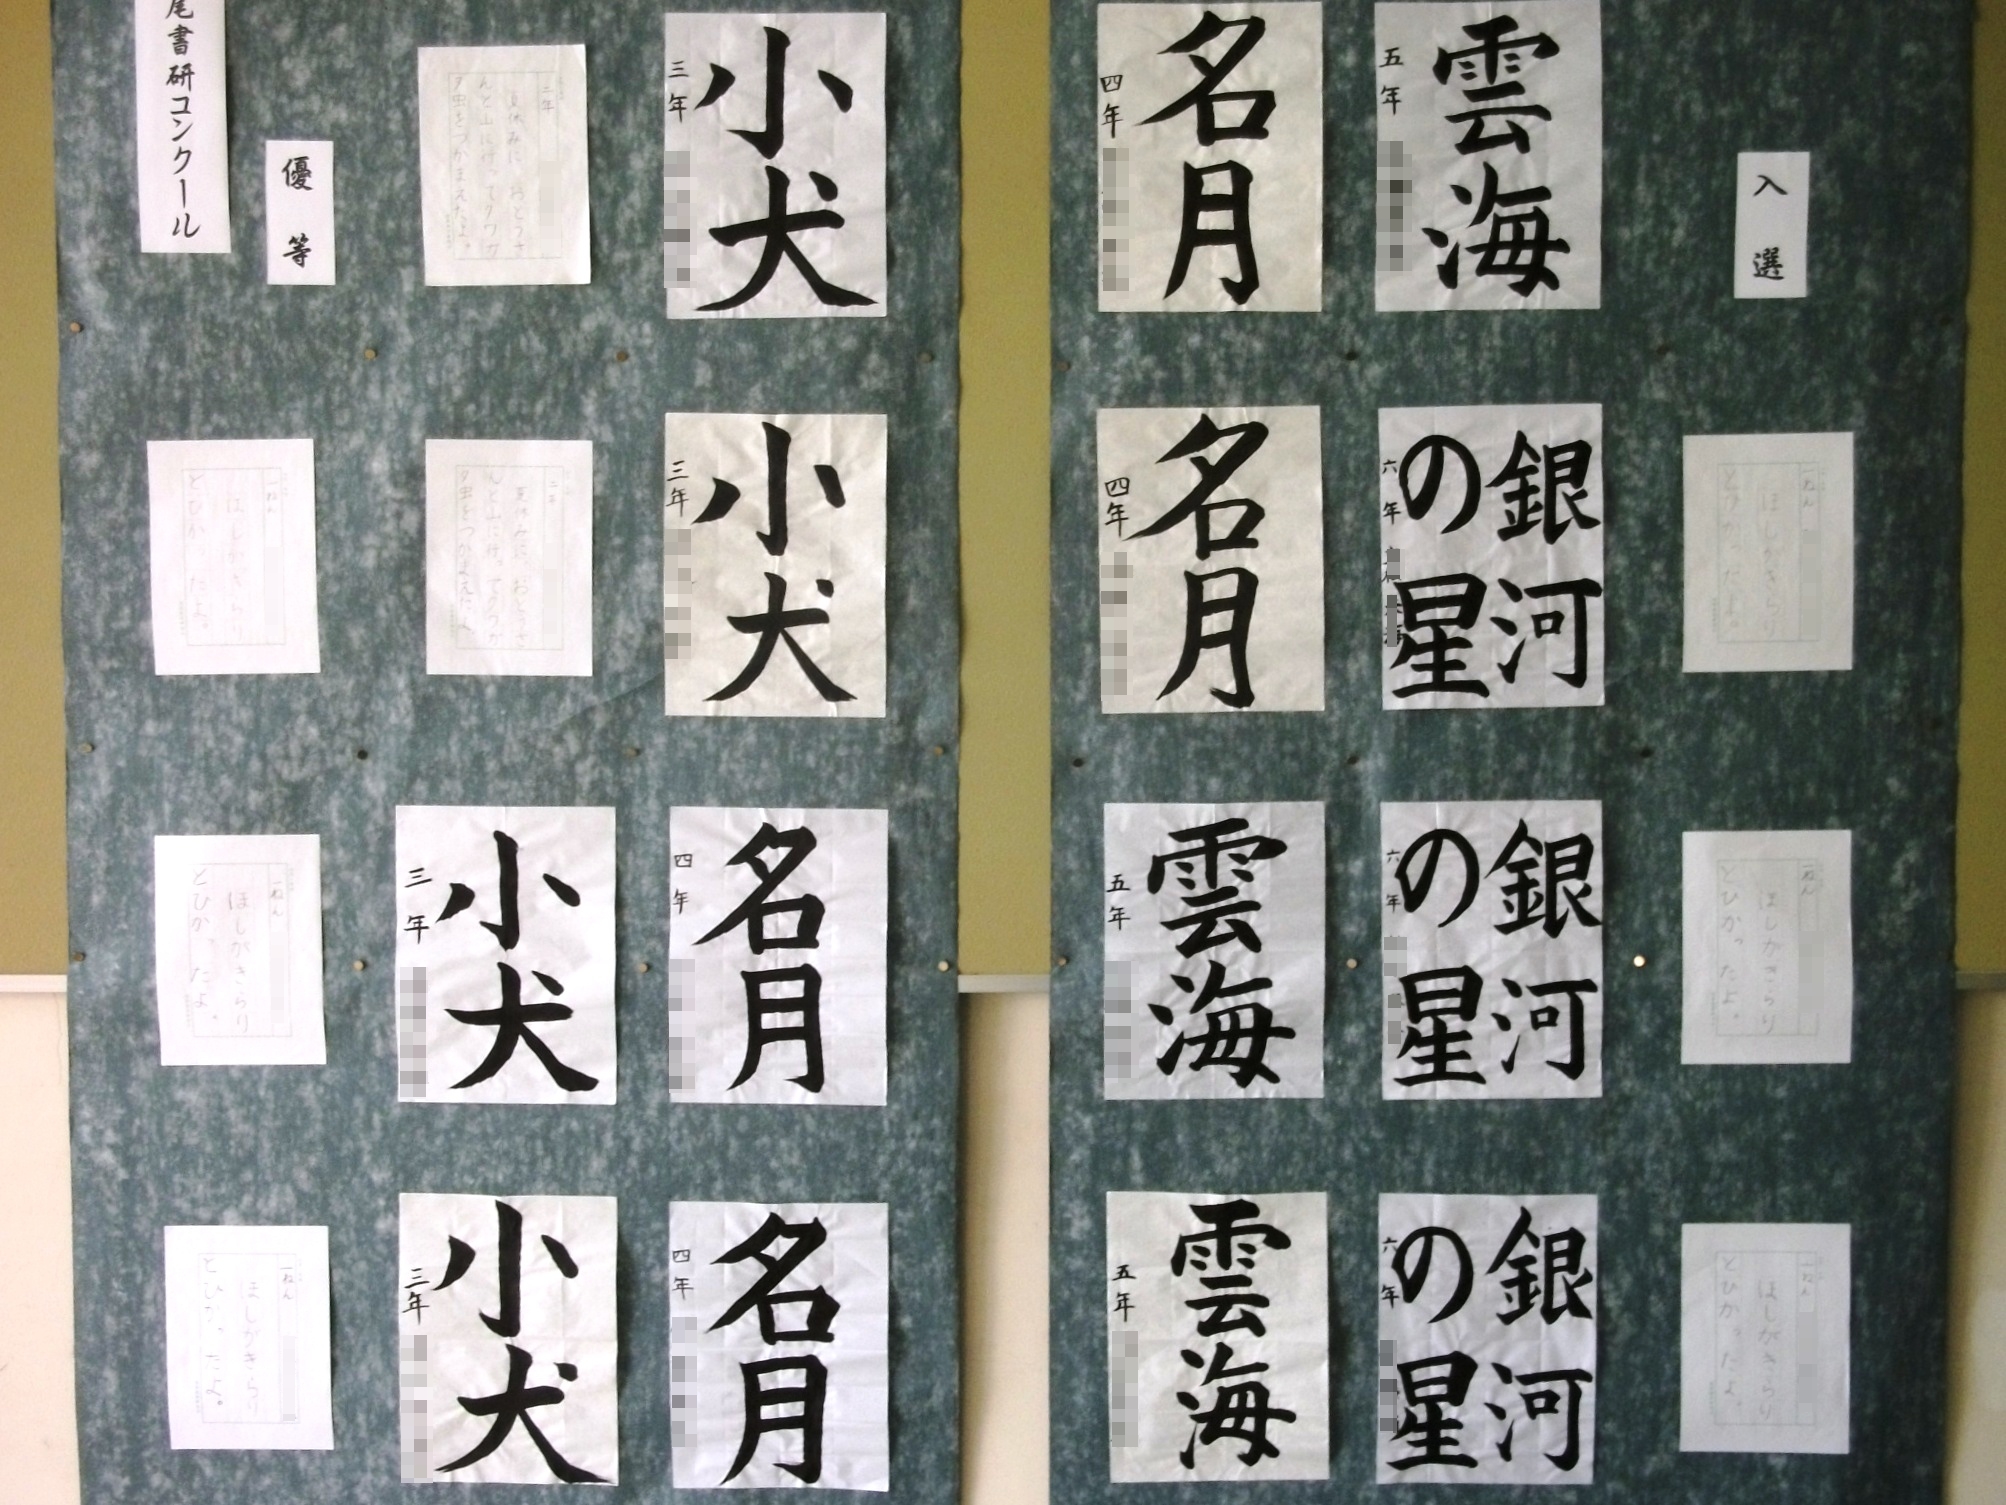 尾書研コンクール
優等
一ねん
ほしがきらり
とひかったよ。
一ねん
ほしがきらり
とひかったよ。
一ねん
ほしがきらり
とひかったよ。
二年
夏休みに、おとうさ
んと山に行ってクワガ
タ虫をつかまえたよ。
二年
夏休みに、おとうさ
んと山に行ってクワガ
タ虫をつかまえたよ。
小犬
三年
小犬
三年
小犬
三年
小犬
三年
名月
四年
名月
四年
名月
四年
名月
四年
雲海
五年
雲海
五年
雲海
五年
銀河
の星
六年
銀河
の星
六年
銀河
の星
六年
入選
一ねん
ほしがきらり
とひかったよ。
一ねん
ほしがきらり
とひかったよ。
一ねん
ほしがきらり
とひかったよ。